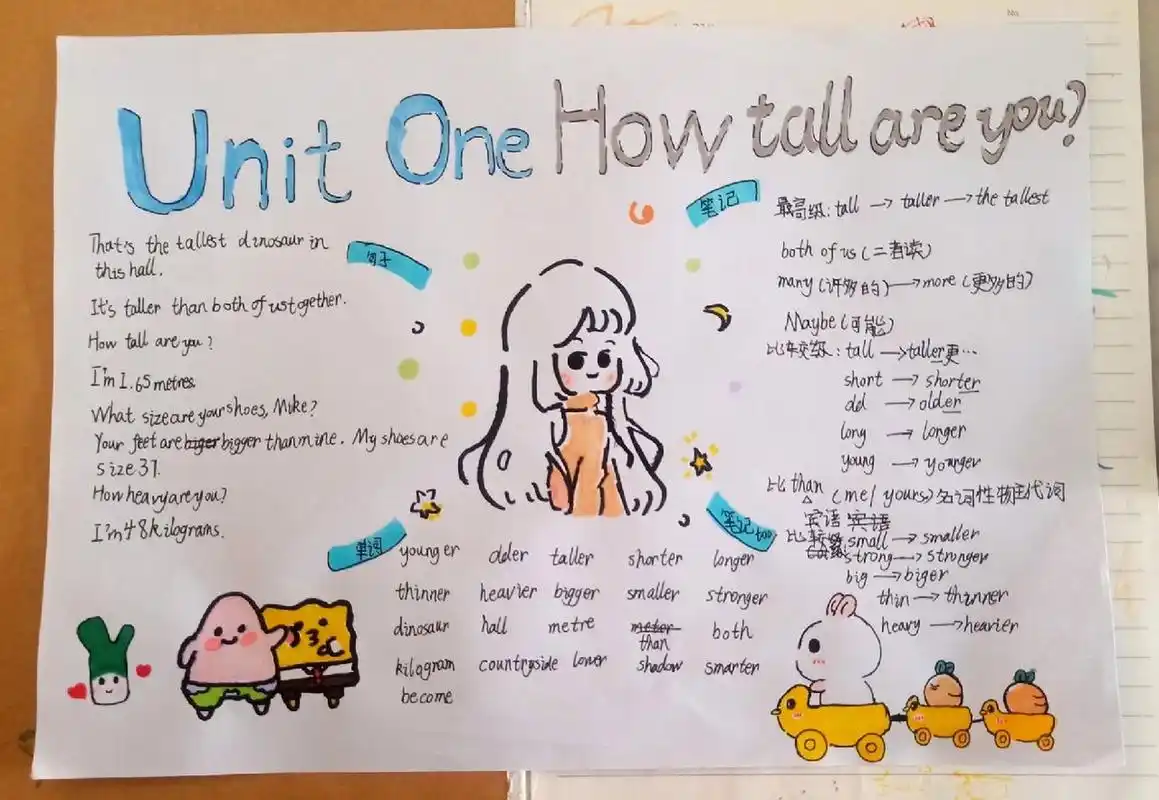 Unit One How tall are you?
句子
That's the tallest dinosaur in
this hall.
It's taller than both of us together.
How tall are you?
I'm 1.65 metres.
What size are your shoes, Mike?
Your feet are biger bigger than mine. My shoes are
size 37.
How heavy are you?
I'm 48 kilograms.
单词
younger older taller shorter longer
thinner heavier bigger smaller stronger
dinosaur hall metre meter than both
kilogram countryside lower shadow smarter
become
笔记
最高级: tall → taller → the tallest
both of us (二者读)
many (许多的) → more (更多的)
Maybe (可能)
比较级: tall → taller 更…
short → shorter
old → older
long → longer
young → younger
比 than (me / yours) 名词性物主代词
宾语 宾语
笔记 too
比较级 small → smaller
strong → stronger
big → biger
thin → thinner
heavy → heavier